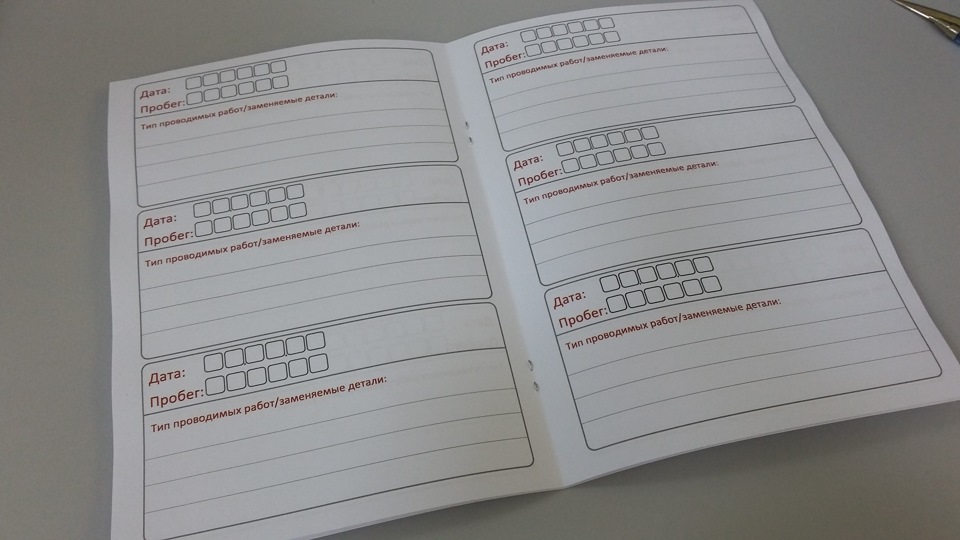 Дата:
Пробег:
Тип проводимых работ/заменяемые детали:
Дата:
Пробег:
Тип проводимых работ/заменяемые детали:
Дата:
Пробег:
Тип проводимых работ/заменяемые детали:
Дата:
Пробег:
Тип проводимых работ/заменяемые детали:
Дата:
Пробег:
Тип проводимых работ/заменяемые детали:
Дата:
Пробег:
Тип проводимых работ/заменяемые детали: